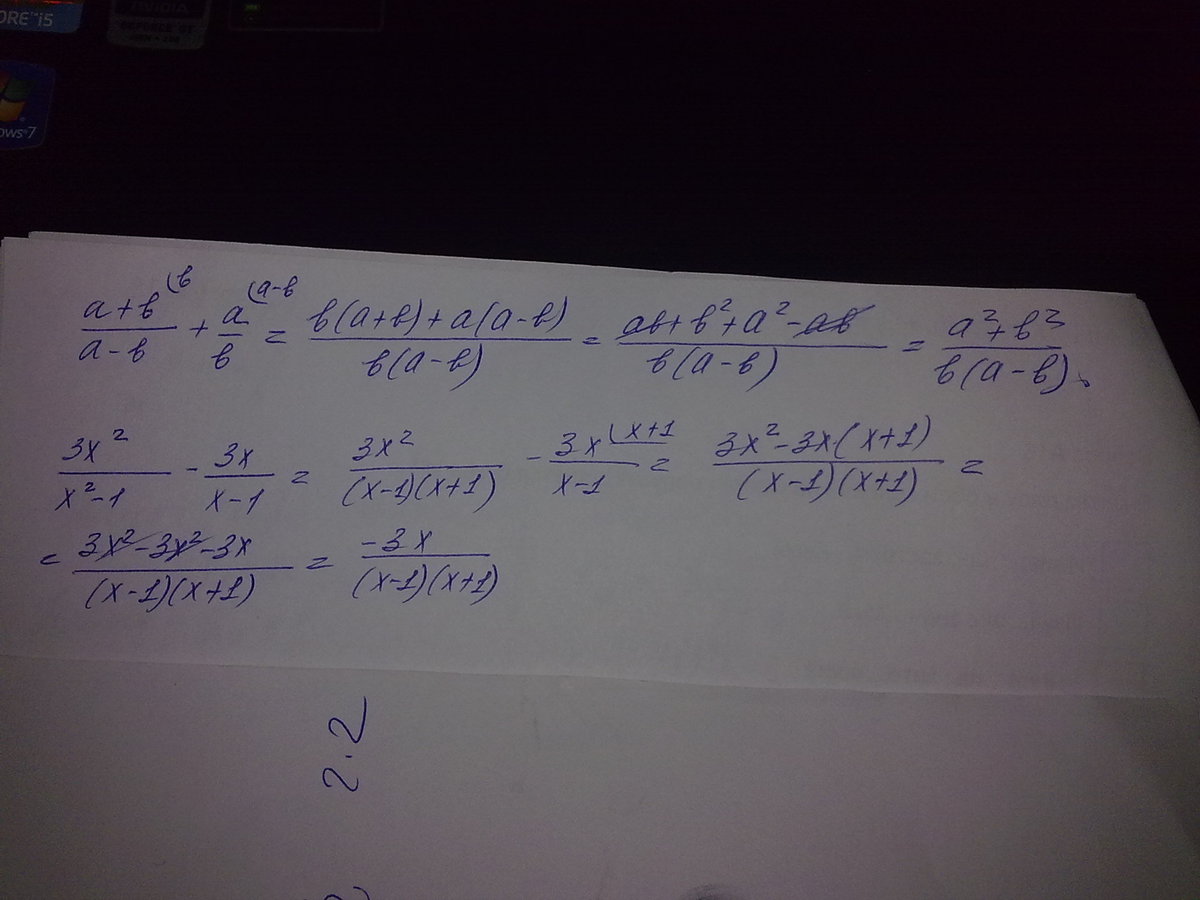 ORE i5
NVIDIA
GEFORCE GT
ows 7
(a+b)/(a-b) ⁽ᵇ + a/b ⁽ᵃ⁻ᵇ = (b(a+b)+a(a-b))/(b(a-b)) = (ab+b²+a²-ab)/(b(a-b)) = (a²+b²)/(b(a-b)).
3x²/(x²-1) - 3x/(x-1) = 3x²/((x-1)(x+1)) - 3x/(x-1) ⁽ˣ⁺¹ = (3x²-3x(x+1))/((x-1)(x+1)) =
= (3x²-3x²-3x)/((x-1)(x+1)) = -3x/((x-1)(x+1))
2.2